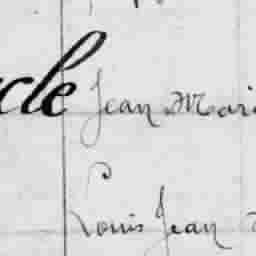 cle Jean Mari
Louis Jean